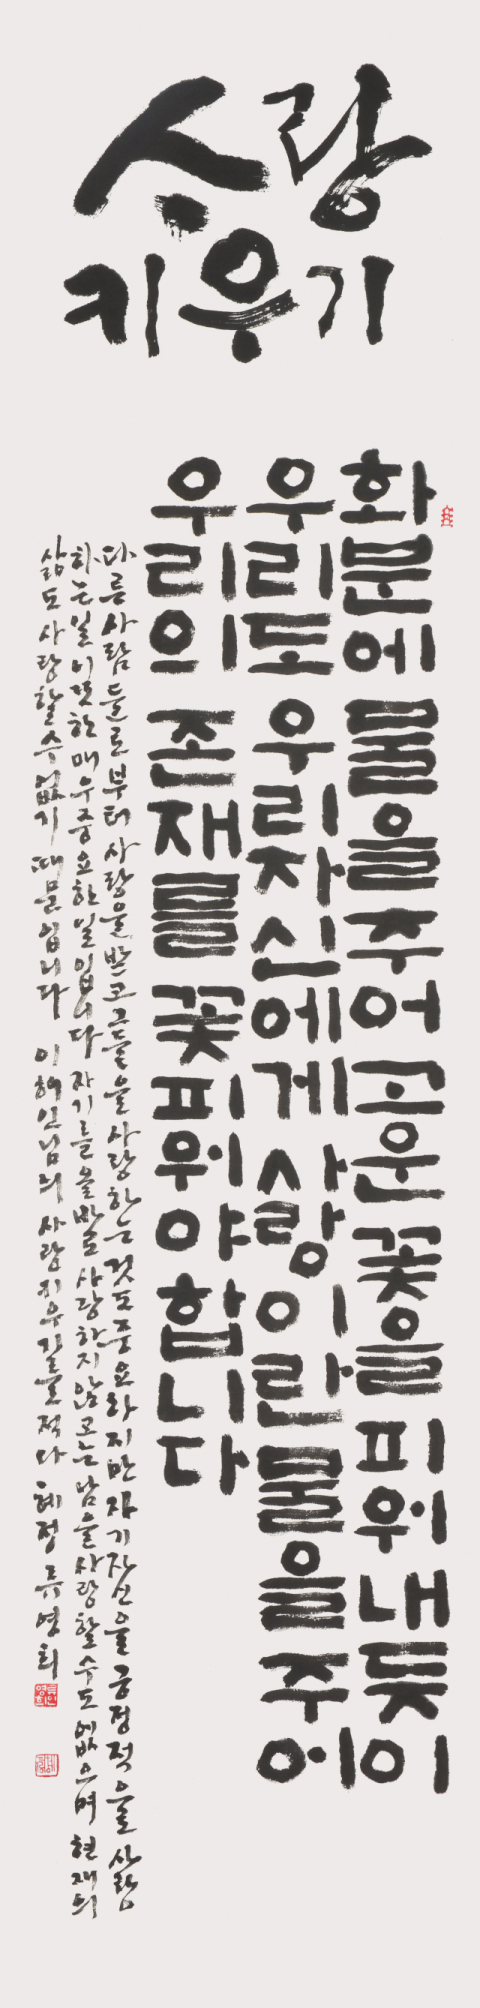 사랑
키우기
화분에 물을 주어 고운 꽃을 피워내듯이
우리도 우리 자신에게 사랑이란 물을 주어
우리의 존재를 꽃피워야 합니다
다른 사람들로부터 사랑을 받고 그들을 사랑하는 것도 중요하지만 자기 자신을 긍정적으로 사랑
하는 일 또한 매우 중요한 일입니다 자기를 올바로 사랑하지 않고는 남을 사랑할 수도 없으며 현재의
삶도 사랑할 수 없기 때문입니다 이해인님의 사랑 키우기를 적다 혜정 류영희